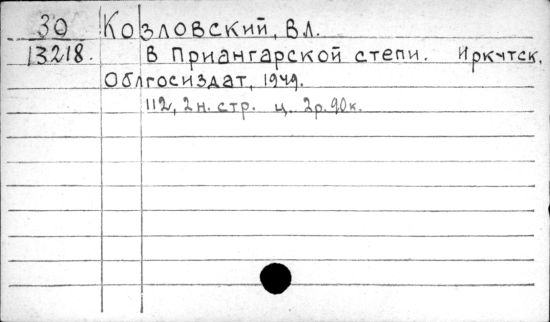 30 Козловский, Вл.
13218. В Приангарской степи. Иркутск,
Облгосиздат, 1949.
112, 2 н. стр. ц. 2р. 90к.